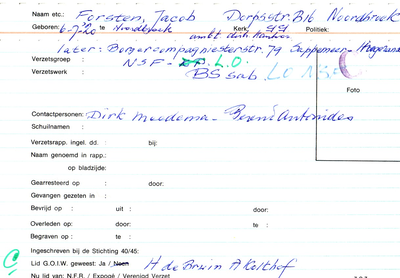 Naam etc.: Forsten, Jacob Dorpsstr. B16 Noordbroek
Geboren: 6-7-20 te Noordbroek Kerk: Politiek:
later: Borgercompagniesterstr. 79 Sappemeer - Hoogezand
Verzetsgroep NSF - L.O.
Verzetswerk : BS sab. LO NSF
Foto
Contactpersonen: Dirk Meedema - Berend Antonides
Schuilnaam :
Verzetsrapp. ingel. dd. : bij:
Naam genoemd in rapp.:
op bladzijde:
Gearresteerd op : door:
Gevangen gezeten in :
Bevrijd op : uit : door:
Overleden op : te : door:
Begraven op : te :
Ingeschreven bij de Stichting 40/45:
Lid G.O.I.W. geweest: Ja / Neen H de Bruin A Kolthof
Nu lid van: N.F.R. / Expogé / Verenigd Verzet